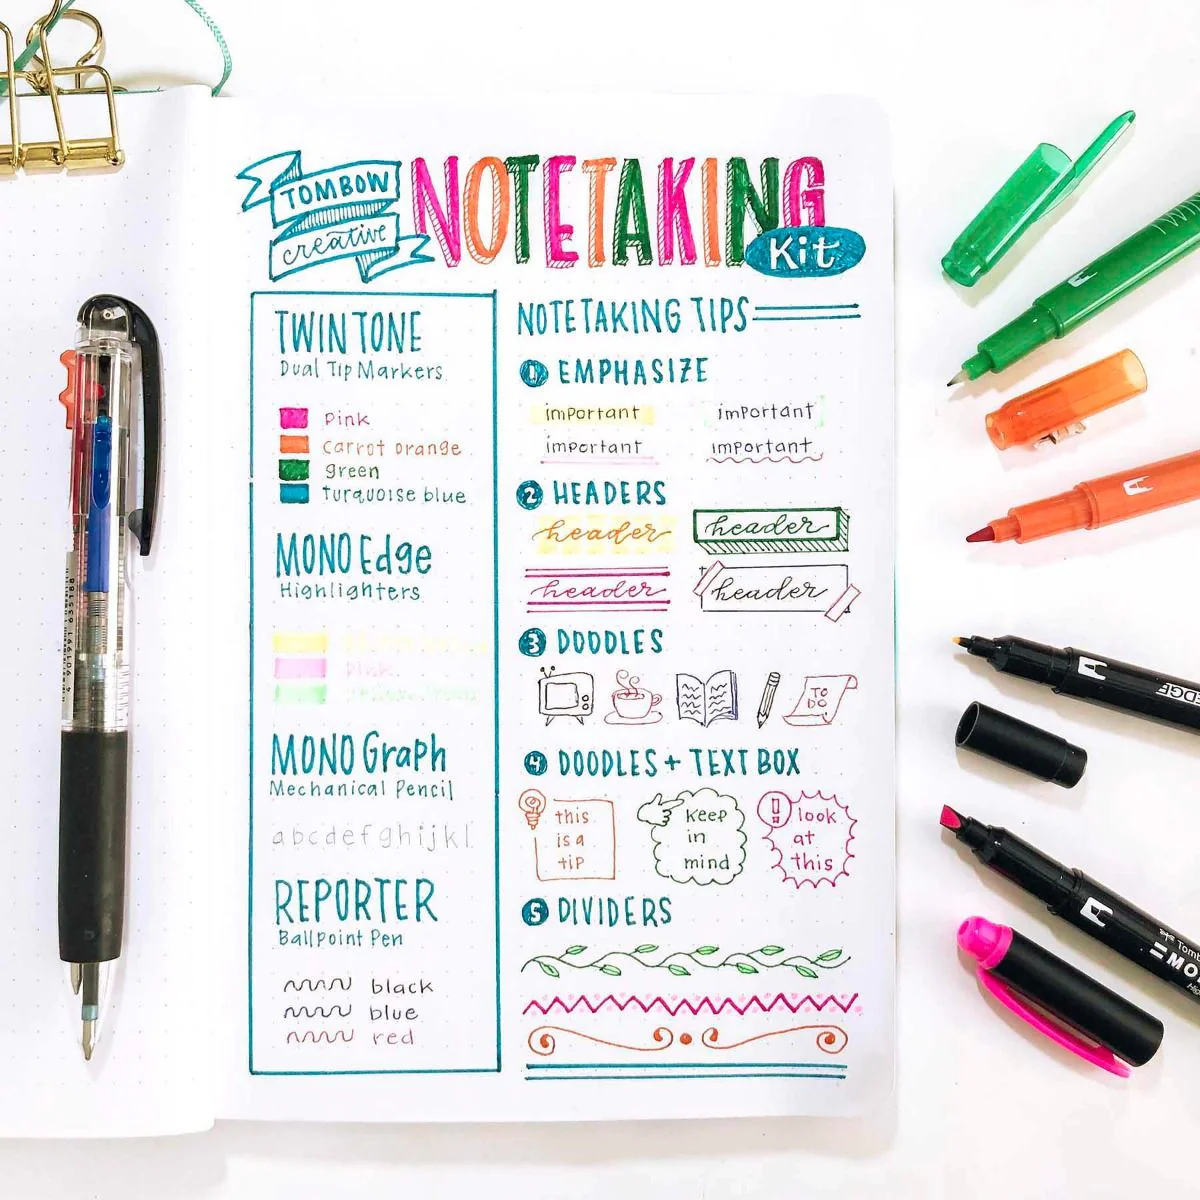 TOMBOW
creative
NOTETAKING
Kit
TWINTONE
Dual Tip Markers
pink
carrot orange
green
turquoise blue
MONO Edge
Highlighters
pink
MONO Graph
Mechanical Pencil
abcdefghijkl
REPORTER
Ballpoint Pen
black
blue
red
NOTETAKING TIPS
1 EMPHASIZE
important important
important important
2 HEADERS
header header
header header
3 DOODLES
TO
DO
4 DOODLES + TEXT BOX
this
is a
tip
keep
in
mind
!
look
at
this
5 DIVIDERS
4 901991 635188
EDGE
Tomb
MO